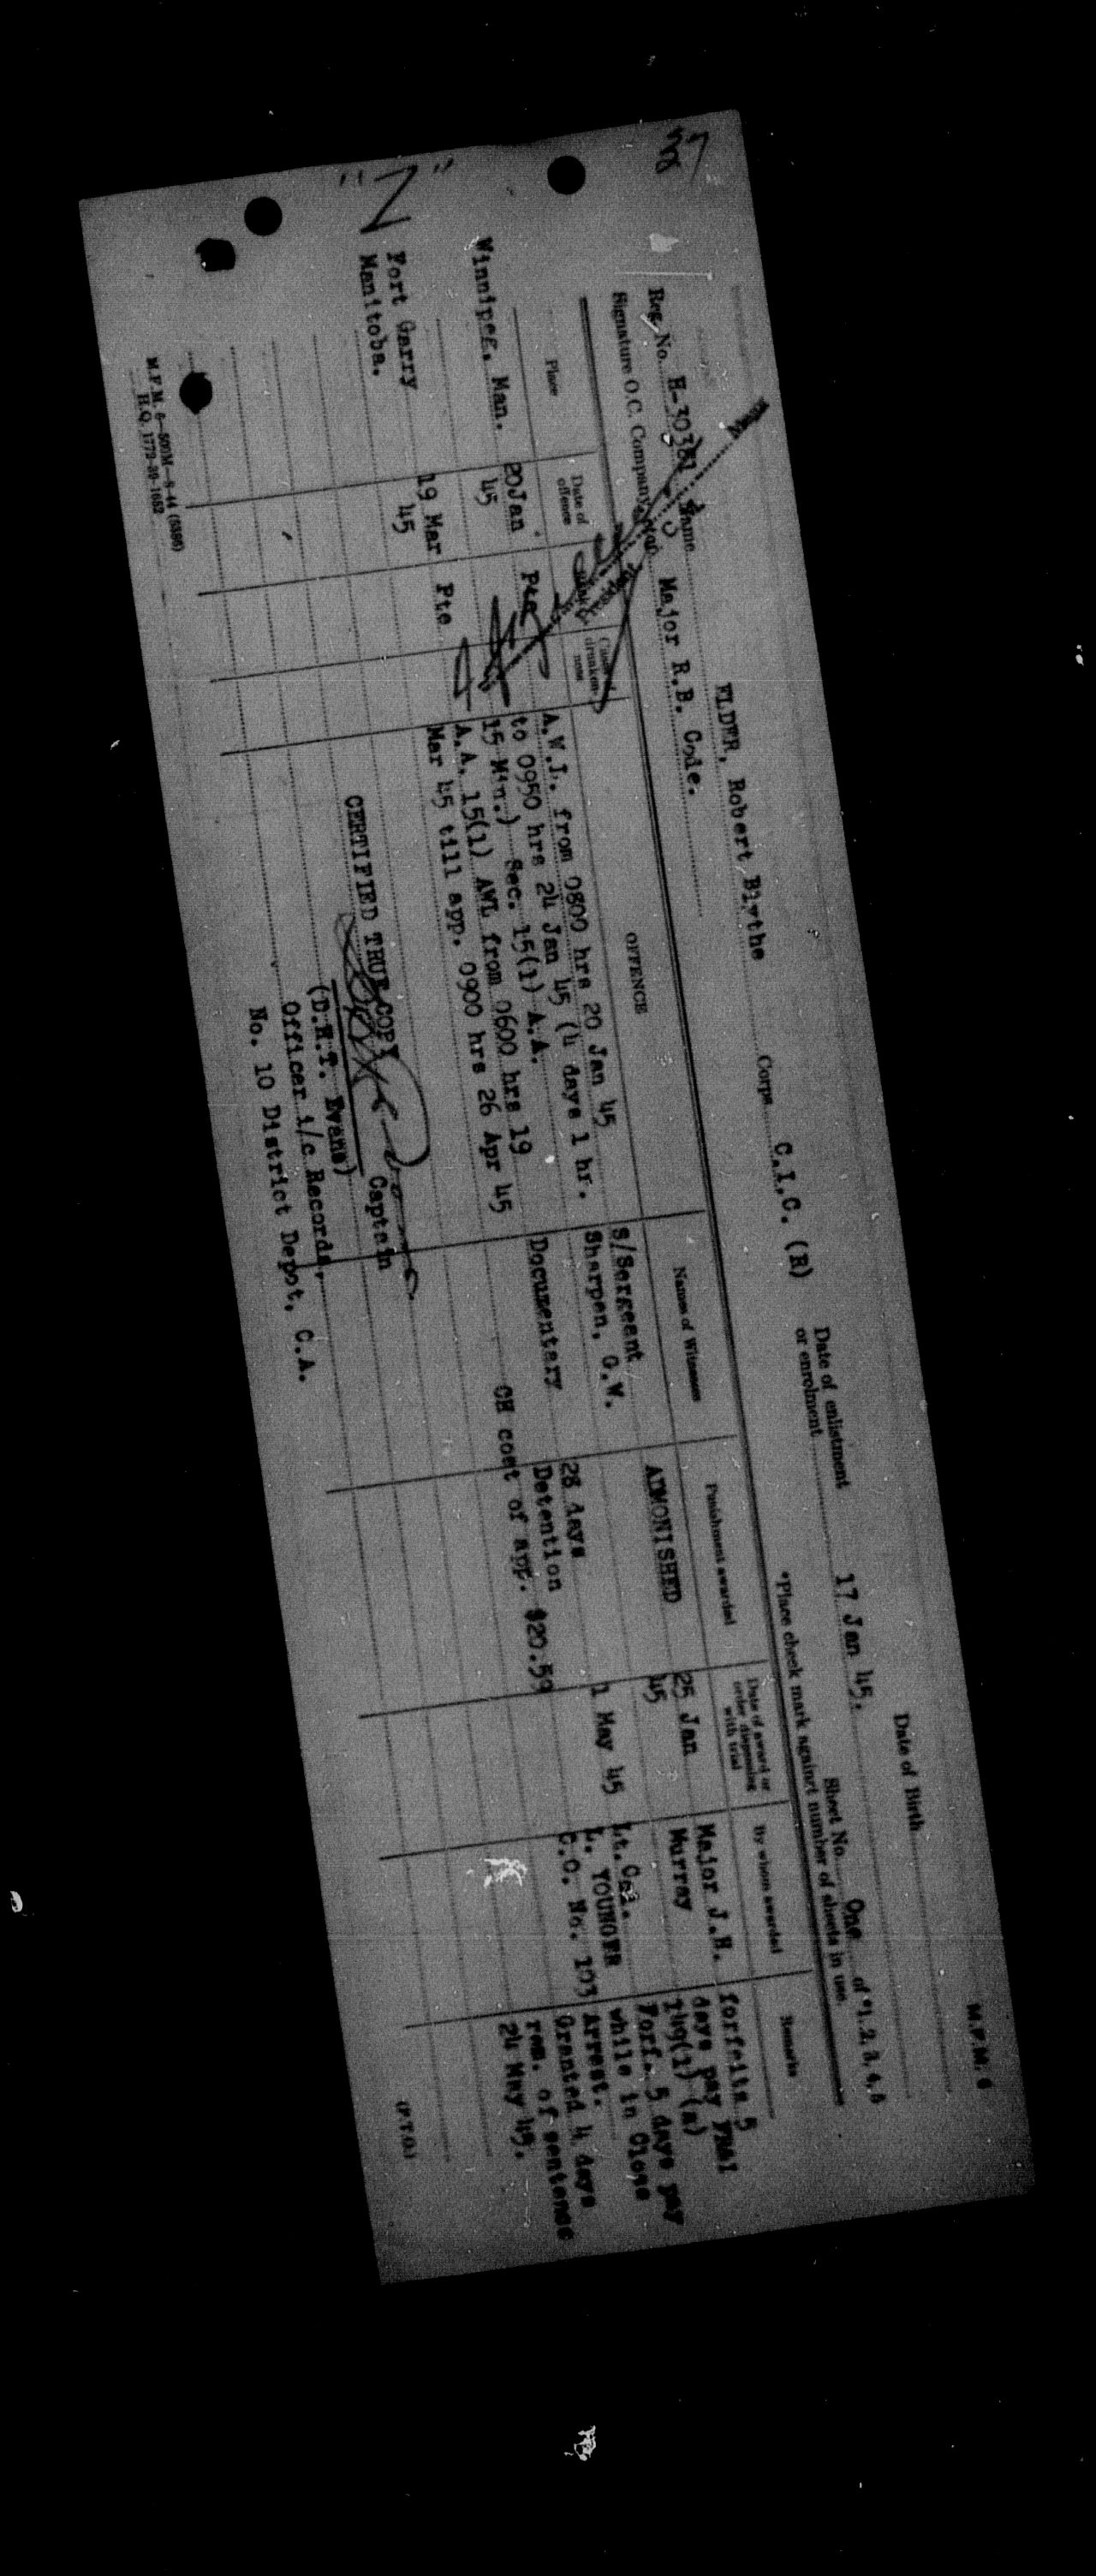 M.F.M. 6
Date of Birth
Reg. No. H-30381 Name ELDER, Robert Blythe Corps C.I.C. (R) Date of enlistment or enrolment 17 Jan 45. Sheet No. One of *1, 2, 3, 4, 5
Signature O.C. Company, Major R.B. Code. *Place check mark against number of sheets in use
Place Date of offence Rank Cases of drunkenness OFFENCE Names of Witnesses Punishment awarded Date of award or order dispensing with trial By whom awarded Remarks
Winnipeg, Man. 20 Jan 45 Pte A.W.L. from 0800 hrs 20 Jan 45 S/Sergeant ADMONISHED 25 Jan 45 Major J.H. Murray forfeits 5
to 0950 hrs 24 Jan 45 (4 days 1 hr. Sharpen, G.W. days pay FR&I
15 Min.) Sec. 15(1) A.A. 149(1) (a)
Fort Garry 19 Mar 45 Pte A.A. 15(1) AWL from 0600 hrs 19 Documentary 28 days 1 May 45 Lt. Col. Forf. 5 days pay
Manitoba. Mar 45 till app. 0900 hrs 26 Apr 45 Detention L. YOUNGER while in Close
CH cost of app. $20.59 C.O. No. 103 Arrest.
Granted 4 days
rem. of sentence
24 May 45.
CERTIFIED TRUE COPY
Captain
(D.H.T. Evans)
Officer i/c Records,
No. 10 District Depot, C.A.
M.F.M. 6—500M—8-44 (5386)
H.Q. 1772-39-1652
(P.T.O.)